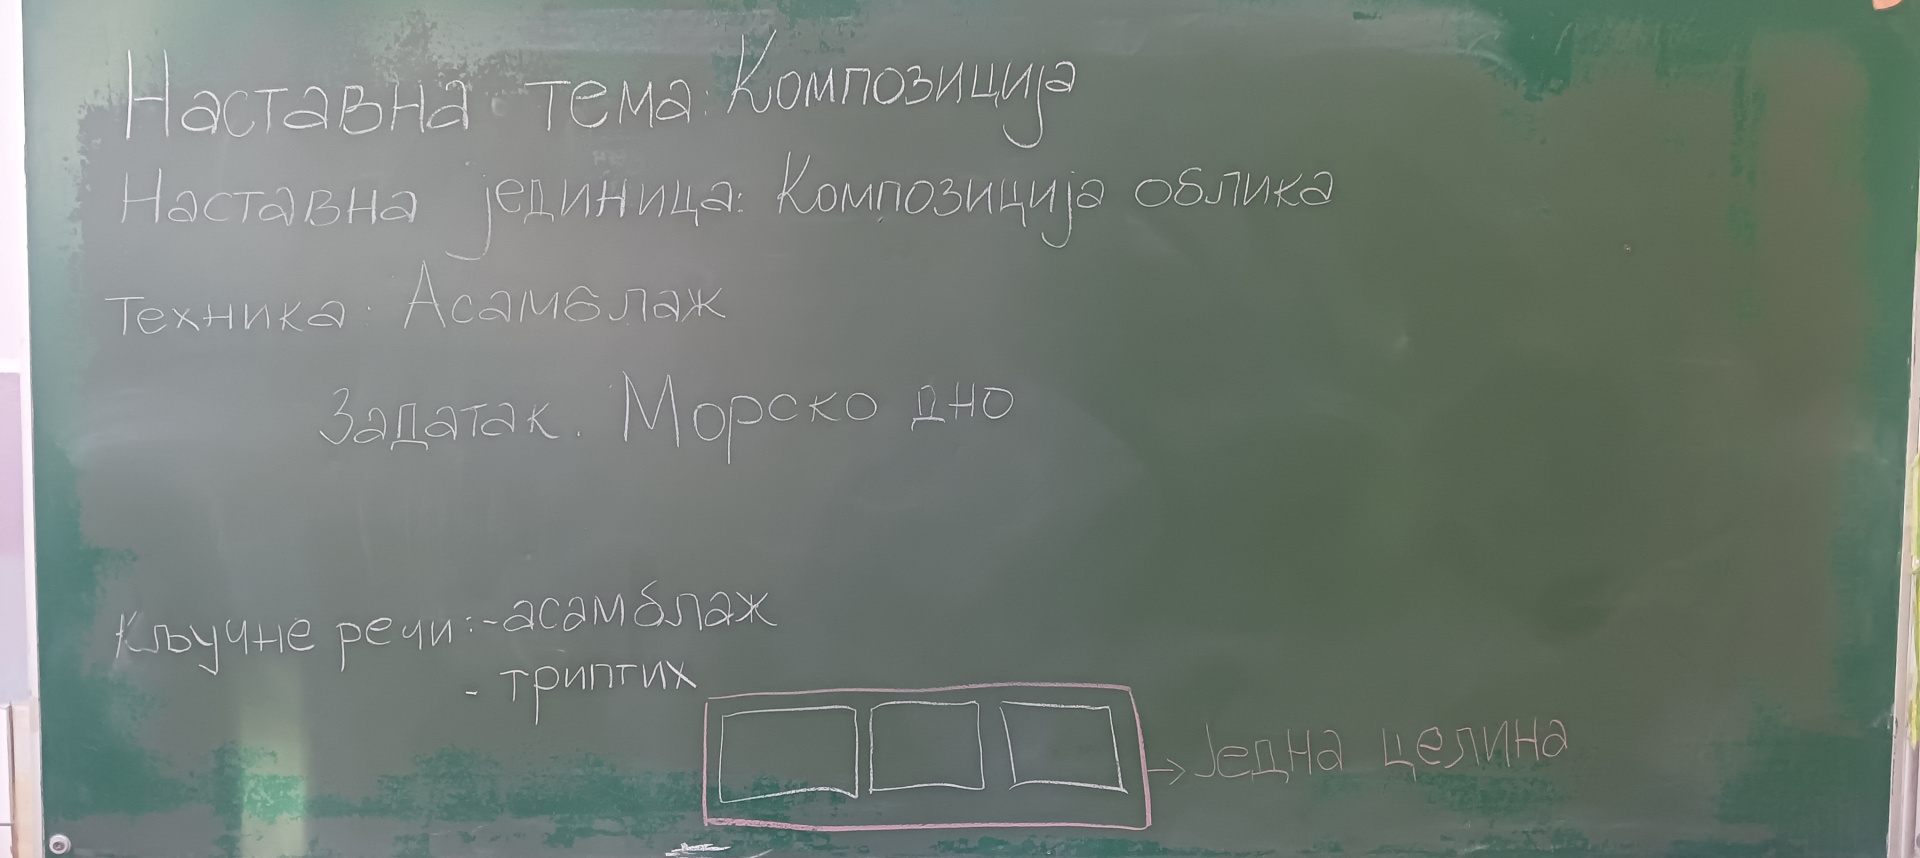 Наставна тема: Композиција
Наставна јединица: Композиција облика
Техника: Асамблаж
Задатак. Морско дно
Кључне речи: - асамблаж
- триптих
→ Једна целина